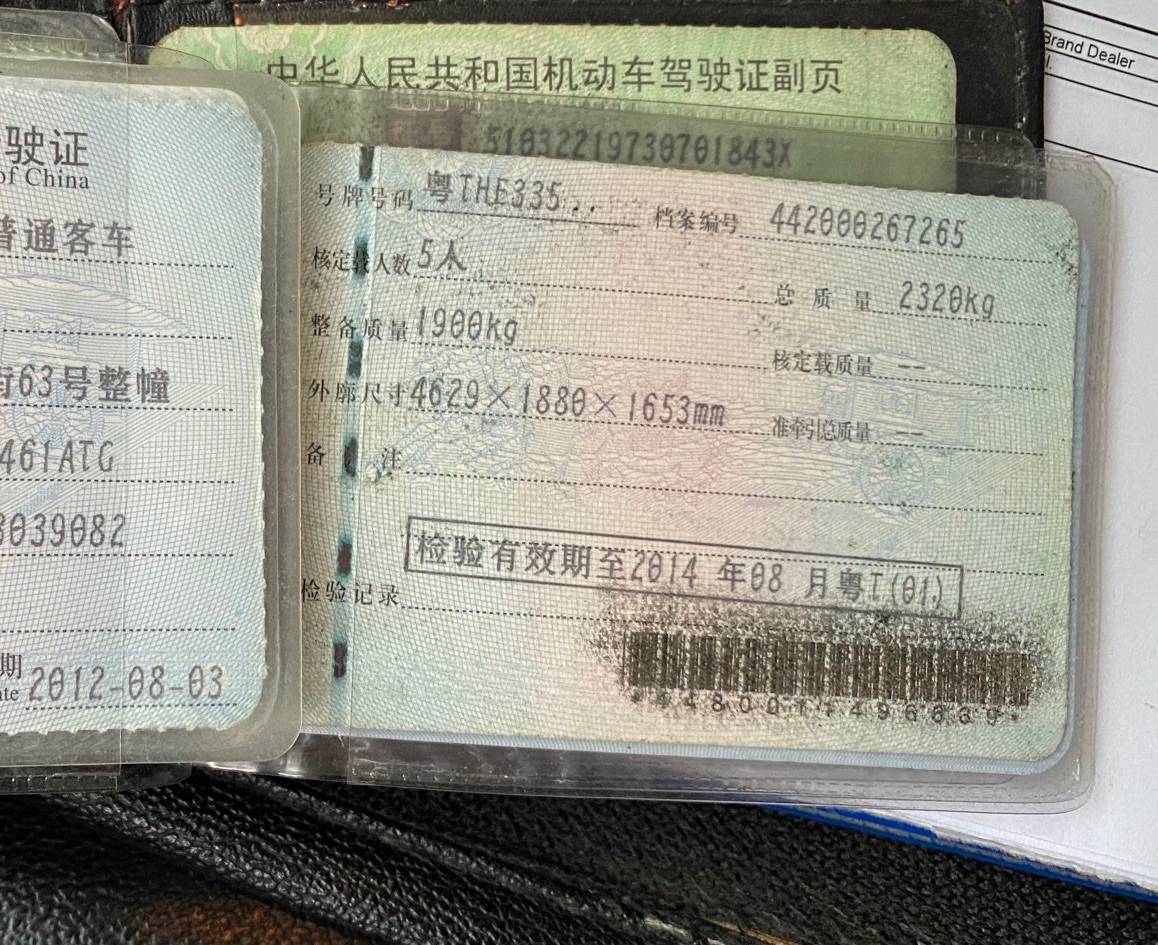 中华人民共和国机动车驾驶证副页
51032219730701843X
Brand Dealer
驶证
of China
普通客车
街63号整幢
461ATG
8039082
期
ate 2012-08-03
号牌号码 粤THE335.. 档案编号 442000267265
核定载人数 5人 总质量 2320kg
整备质量 1900kg 核定载质量 --
外廓尺寸 4629×1880×1653mm 准牵引总质量 --
备注
检验有效期至2014年08月粤T(01)
检验记录